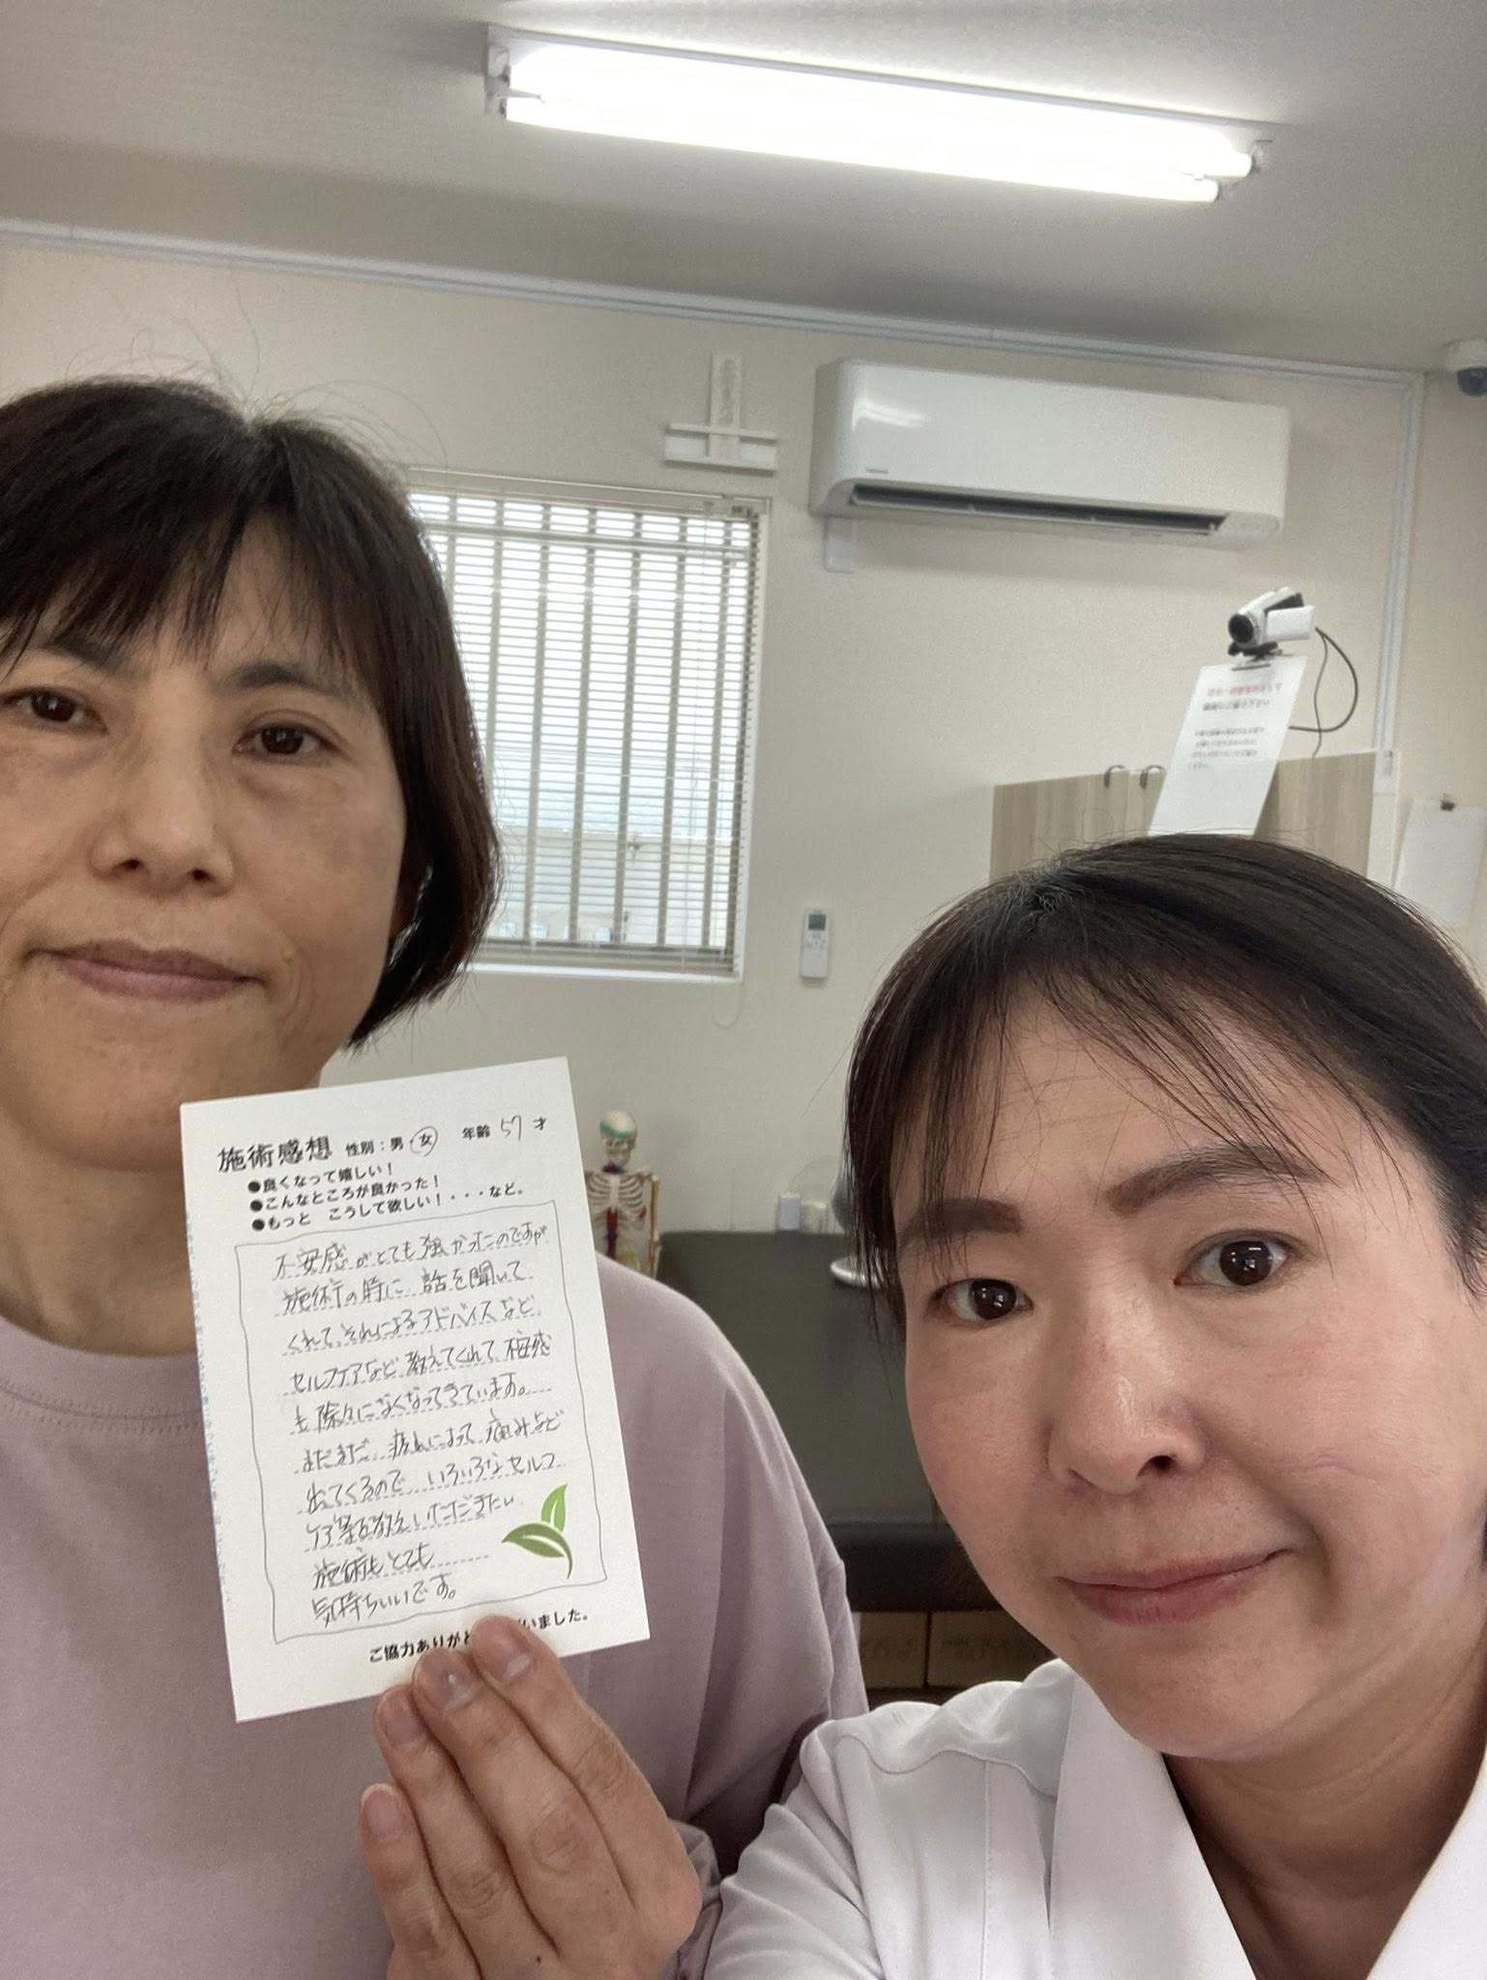 施術感想 性別：男・女 年齢 57 才
●良くなって嬉しい！
●こんなところが良かった！
●もっと こうして欲しい！・・・など。
不安感がとても強かったのですが
施術の時に話を聞いて
くれて、それによるアドバイスなど
セルフケアなど教えてくれて不安感
も徐々になくなってきています。
まだまだ、疲れによって痛みなど
出てくるので いろいろなセルフ
ケア等を教えいただきたい
施術もとても
気持ちいいです。
ご協力ありがと いました。